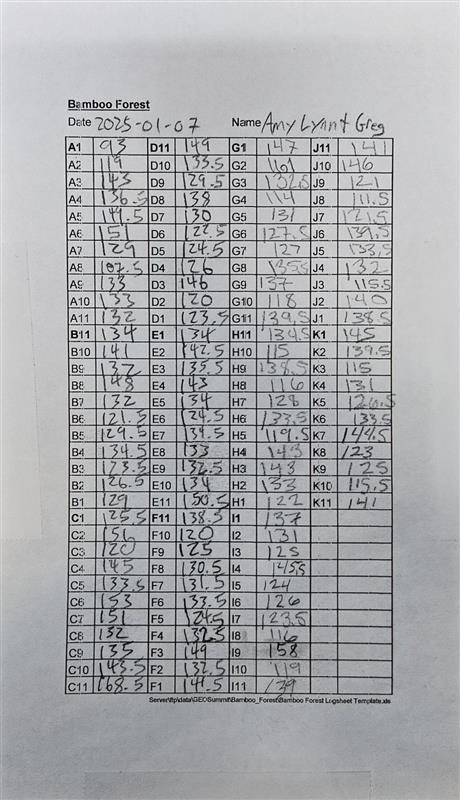 Bamboo Forest
Date 2025-01-07 Name Amy Lynn + Greg
A1 93 D11 149 G1 147 J11 141
A2 119 D10 133.5 G2 161 J10 146
A3 143 D9 129.5 G3 132.5 J9 121
A4 136.5 D8 138 G4 114 J8 111.5
A5 149.5 D7 130 G5 131 J7 121.5
A6 151 D6 122.5 G6 127.5 J6 139.5
A7 129 D5 124.5 G7 127 J5 133.5
A8 107.5 D4 126 G8 135.5 J4 132
A9 133 D3 146 G9 137 J3 115.5
A10 133 D2 120 G10 118 J2 140
A11 132 D1 123.5 G11 139.5 J1 138.5
B11 134 E1 134 H11 134.5 K1 145
B10 141 E2 142.5 H10 115 K2 139.5
B9 137 E3 135.5 H9 138.5 K3 115
B8 148 E4 143 H8 116 K4 131
B7 132 E5 134 H7 128 K5 126.5
B6 121.5 E6 124.5 H6 133.5 K6 133.5
B5 129.5 E7 139.5 H5 119.5 K7 144.5
B4 134.5 E8 133 H4 143 K8 123
B3 123.5 E9 132.5 H3 148 K9 125
B2 126.5 E10 134 H2 133 K10 115.5
B1 129 E11 150.5 H1 122 K11 141
C1 125.5 F11 138.5 I1 137
C2 156 F10 120 I2 131
C3 120 F9 125 I3 125
C4 145 F8 130.5 I4 145.5
C5 133.5 F7 131.5 I5 124
C6 153 F6 133.5 I6 126
C7 151 F5 124.5 I7 123.5
C8 132 F4 132.5 I8 116
C9 135 F3 149 I9 158
C10 143.5 F2 132.5 I10 119
C11 168.5 F1 141.5 I11 139
Server\ftp\data\GEOSummit\Bamboo_Forest\Bamboo Forest Logsheet Template.xls